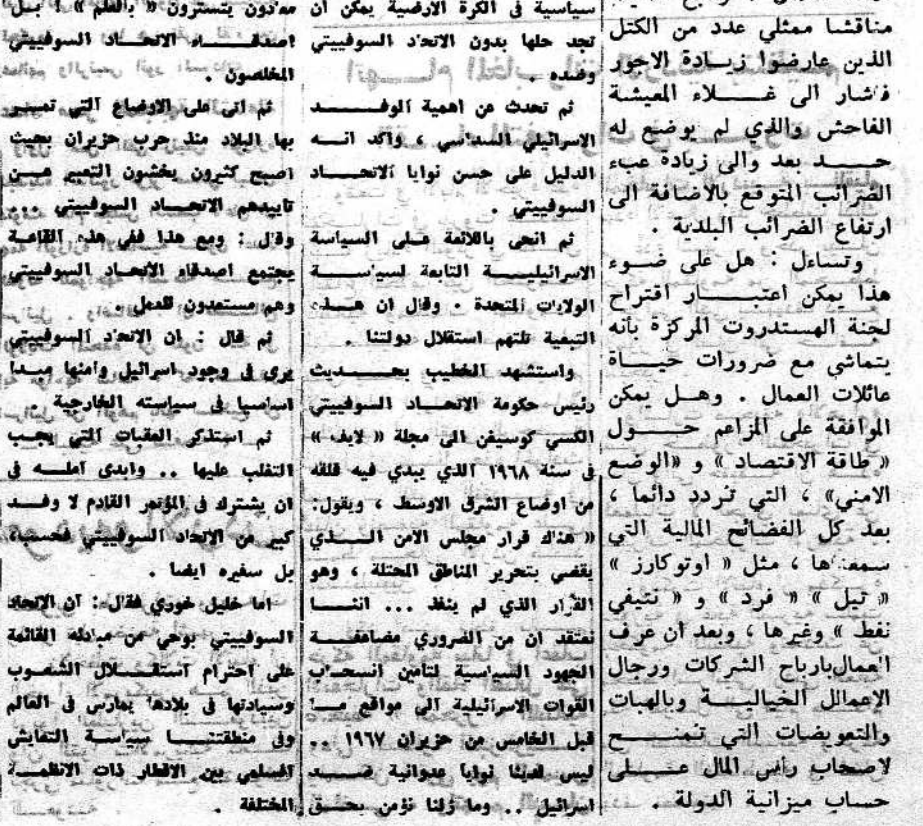 مناقشا ممثلي عدد من الكتل
الذين عارضوا زيادة الاجور
فاشار الى غلاء المعيشة
الفاحش والذي لم يوضع له
حد بعد والى زيادة عبء
الضرائب المتوقع بالاضافة الى
ارتفاع الضرائب البلدية .
وتساءل : هل على ضوء
هذا يمكن اعتبار اقتراح
لجنة الهستدروت المركزة بانه
يتماشى مع ضرورات حياة
عائلات العمال . وهل يمكن
الموافقة على المزاعم حول
« طاقة الاقتصاد » و «الوضع
الامني» ، التي تردد دائما ،
بعد كل الفضائح المالية التي
سمعناها ، مثل « اوتوكارز »
« تيل » « فرد » و « نتيفي
نفط » وغيرها ، وبعد ان عرف
العمال بارباح الشركات ورجال
الاعمال الخيالية وبالهبات
والتعويضات التي تمنح
لاصحاب راس المال على
حساب ميزانية الدولة .
سياسية في الكرة الارضية يمكن ان
تجد حلها بدون الاتحاد السوفييتي
وضده .
ثم تحدث عن اهمية الوفد
الاسرائيلي السداسي ، واكد انه
الدليل على حسن نوايا الاتحاد
السوفييتي .
ثم انحى باللائمة على السياسة
الاسرائيلية التابعة لسياسة
الولايات المتحدة . وقال ان هذه
التبعية تلتهم استقلال دولتنا .
واستشهد الخطيب بحديث
رئيس حكومة الاتحاد السوفييتي
الكسي كوسيفن الى مجلة « لايف »
في سنة ١٩٦٨ الذي يبدي فيه قلقه
من اوضاع الشرق الاوسط ، ويقول:
« هناك قرار مجلس الامن الذي
يقضي بتحرير المناطق المحتلة ، وهو
القرار الذي لم ينفذ ... اننا
نعتقد ان من الضروري مضاعفة
الجهود السياسية لتامين انسحاب
القوات الاسرائيلية الى مواقع ما
قبل الخامس من حزيران ١٩٦٧ ..
ليس لدينا نوايا عدوانية ضد
اسرائيل .. وما زلنا نؤمن بحق
معادون يتسترون « بالعلم » ! بل
اصدقاء الاتحاد السوفييتي
المخلصون .
ثم اتى على الاوضاع التي تمر
بها البلاد منذ حرب حزيران بحيث
اصبح كثيرون يخشون التعبير عن
تاييدهم الاتحاد السوفييتي ...
وقال : ومع هذا ففي هذه القاعة
يجتمع اصدقاء الاتحاد السوفييتي
وهم مستعدون للعمل .
ثم قال : ان الاتحاد السوفييتي
يرى في وجود اسرائيل وامنها مبدا
اساسيا في سياسته الخارجية .
ثم استذكر العقبات التي يجب
التغلب عليها .. وابدى امله في
ان يشترك في المؤتمر القادم لا وفد
كبير من الاتحاد السوفييتي فحسب،
بل سفيره ايضا .
اما خليل خوري فقال : ان الاتحاد
السوفييتي بوحي من مبادئه القائمة
على احترام استقلال الشعوب
وسيادتها في بلادها يمارس في العالم
وفي منطقتنا سياسة التعايش
السلمي بين الاقطار ذات الانظمة
المختلفة .